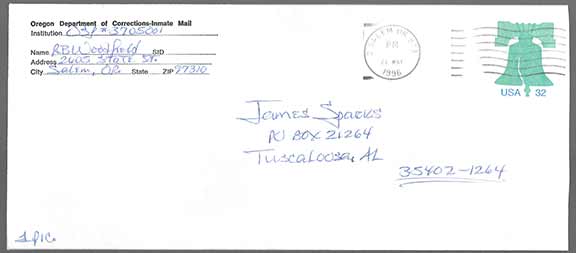 Oregon Department of Corrections-Inmate Mail
Institution OSP # 3705001
Name RBWoodfield SID
Address 2605 State St.
City Salem, OR. State ZIP 97310
SALEM OR
PM
MAY
1996
USA 32
James Sparks
PO BOX 21264
Tuscaloosa, AL
35402-1264
1 pic.